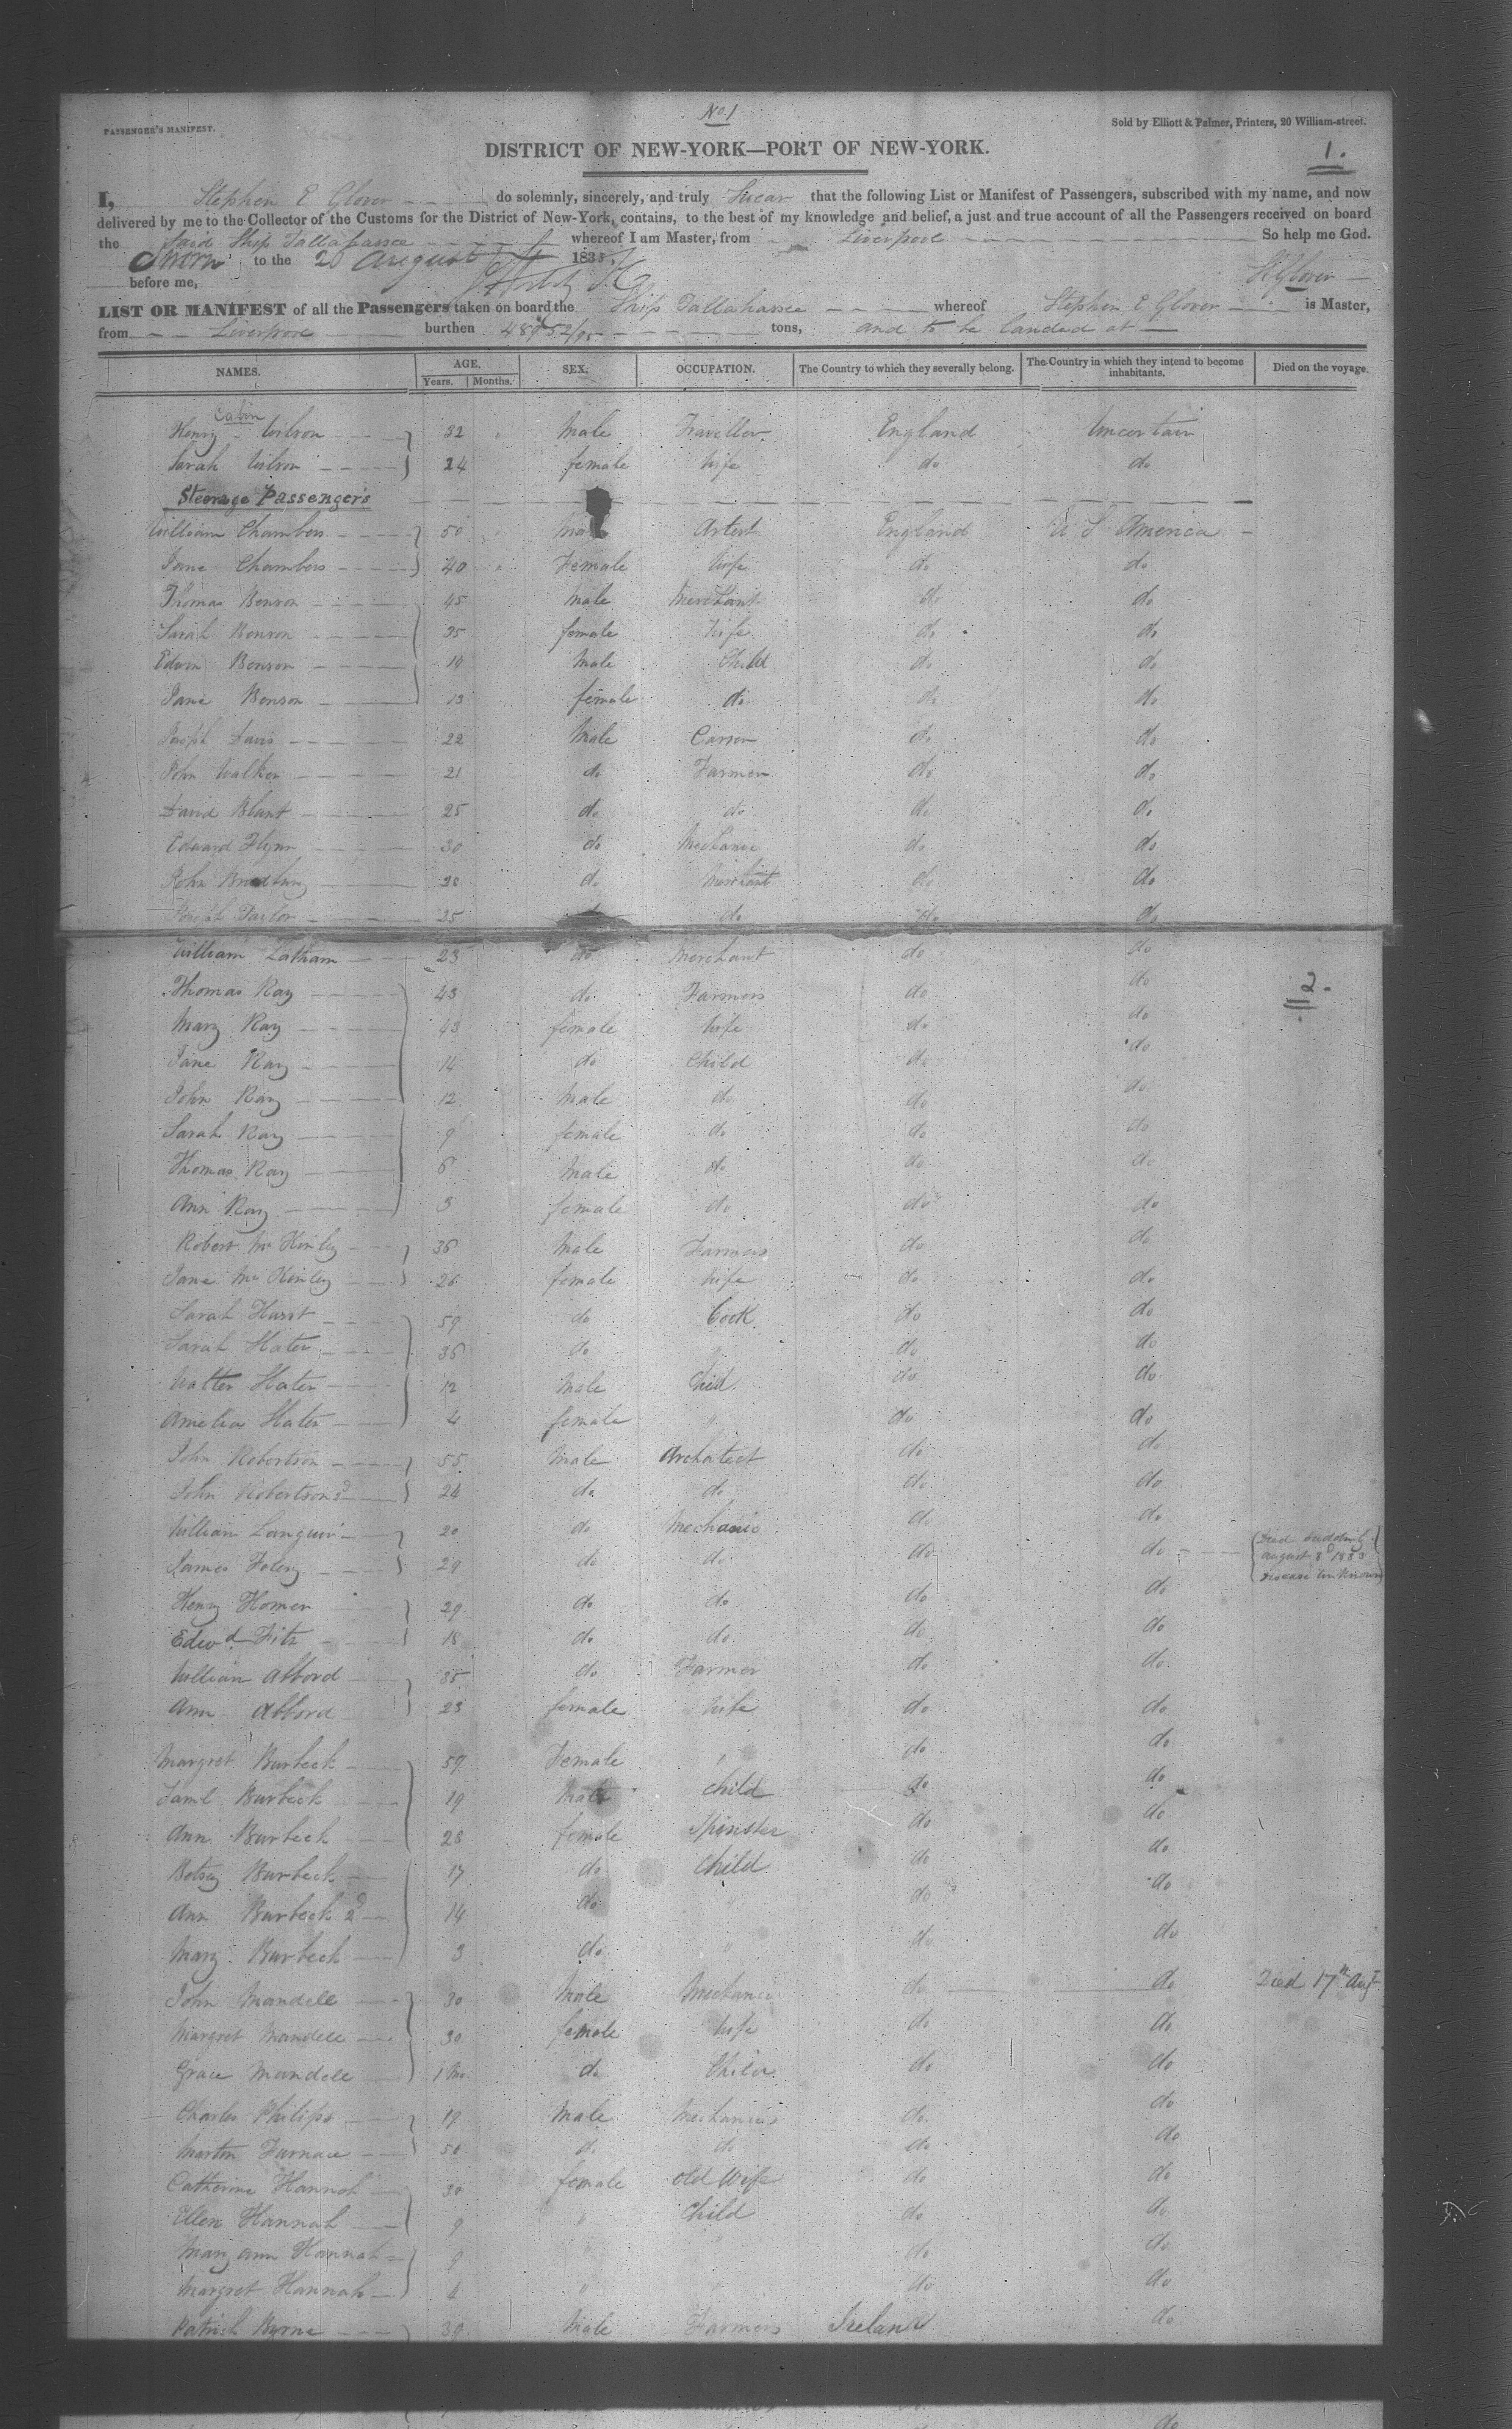 No. 1
PASSENGER'S MANIFEST.
Sold by Elliott & Palmer, Printers, 20 William-street.
DISTRICT OF NEW-YORK—PORT OF NEW-YORK.
1.
I, Stephen E Glover do solemnly, sincerely, and truly Swear that the following List or Manifest of Passengers, subscribed with my name, and now
delivered by me to the Collector of the Customs for the District of New-York, contains, to the best of my knowledge and belief, a just and true account of all the Passengers received on board
the Said Ship Tallahassee whereof I am Master, from Liverpool So help me God.
Sworn to the 20 August 183
before me, S E Glover
LIST OR MANIFEST of all the Passengers taken on board the Ship Tallahassee whereof Stephen E Glover is Master,
from Liverpool burthen tons, and to be landed at
NAMES. AGE. SEX. OCCUPATION. The Country to which they severally belong. The Country in which they intend to become inhabitants. Died on the voyage.
Years. Months.
Cabin
Henry Wilson 32 Male Traveller England Uncertain
Sarah Wilson 24 female Wife do do
Steerage Passenger's
William Chambers 50 Male Artist England U S America
Jane Chambers 40 Female Wife do do
Thomas Benson 45 Male Merchant do do
Sarah Benson 35 female Wife do do
Edwin Benson 14 Male Child do do
Jane Benson 13 female do do do
Joseph Davis 22 Male do do
John Walker 21 do Farmer do do
David Blunt 25 do do do do
Edward Flynn 30 do Mechanic do do
John Bradbury 28 do Merchant do do
Joseph Taylor 25 do do do do
William Latham 23 do Merchant do do
2.
Thomas Ray 43 do Farmers do do
Mary Ray 43 female Wife do do
Jane Ray 14 do Child do do
John Ray 12 Male do do do
Sarah Ray 9 female do do do
Thomas Ray 6 Male do do do
Ann Ray 3 female do do do
Robert McKinley 36 Male Farmers do do
Jane McKinley 26 female Wife do do
Sarah Hurst 59 do Cook do do
Sarah Slater 36 do " do do
Walter Slater 12 Male Child do do
Amelia Slater 4 female " do do
John Robertson 55 Male Archatect do do
John Robertson 2d 24 do do do do
William 20 do Mechanic do do
James Foley 29 do do do do Died suddenly
august 8d 1833
disease unknown
Henry Homer 29 do do do do
Edwd Fitz 18 do do do do
William Abbord 35 do Farmer do do
Ann Abbord 23 female Wife do do
Margret Burbeck 59 Female " do do
Saml Burbeck 19 Male child do do
Ann Burbeck 28 female Spinster do do
Betsey Burbeck 17 do Child do do
Ann Burbeck 2d 14 do " do do
Mary Burbeck 3 do " do do
John Mandell 30 Male Mechanic do do Died 17th Aug
Margret Mandell 30 female Wife do do
Grace Mandell 1 Mo. do Child do do
Charles Philips 19 Male Mechanics do do
Martin Furnace 50 do do do do
Catherine Hannah 30 female old Wife do do
Ellen Hannah 9 " Child do do
Mary Ann Hannah 9 " " do do
Margret Hannah 4 " " do do
Patrick Byrne 39 Male Farmers Ireland do